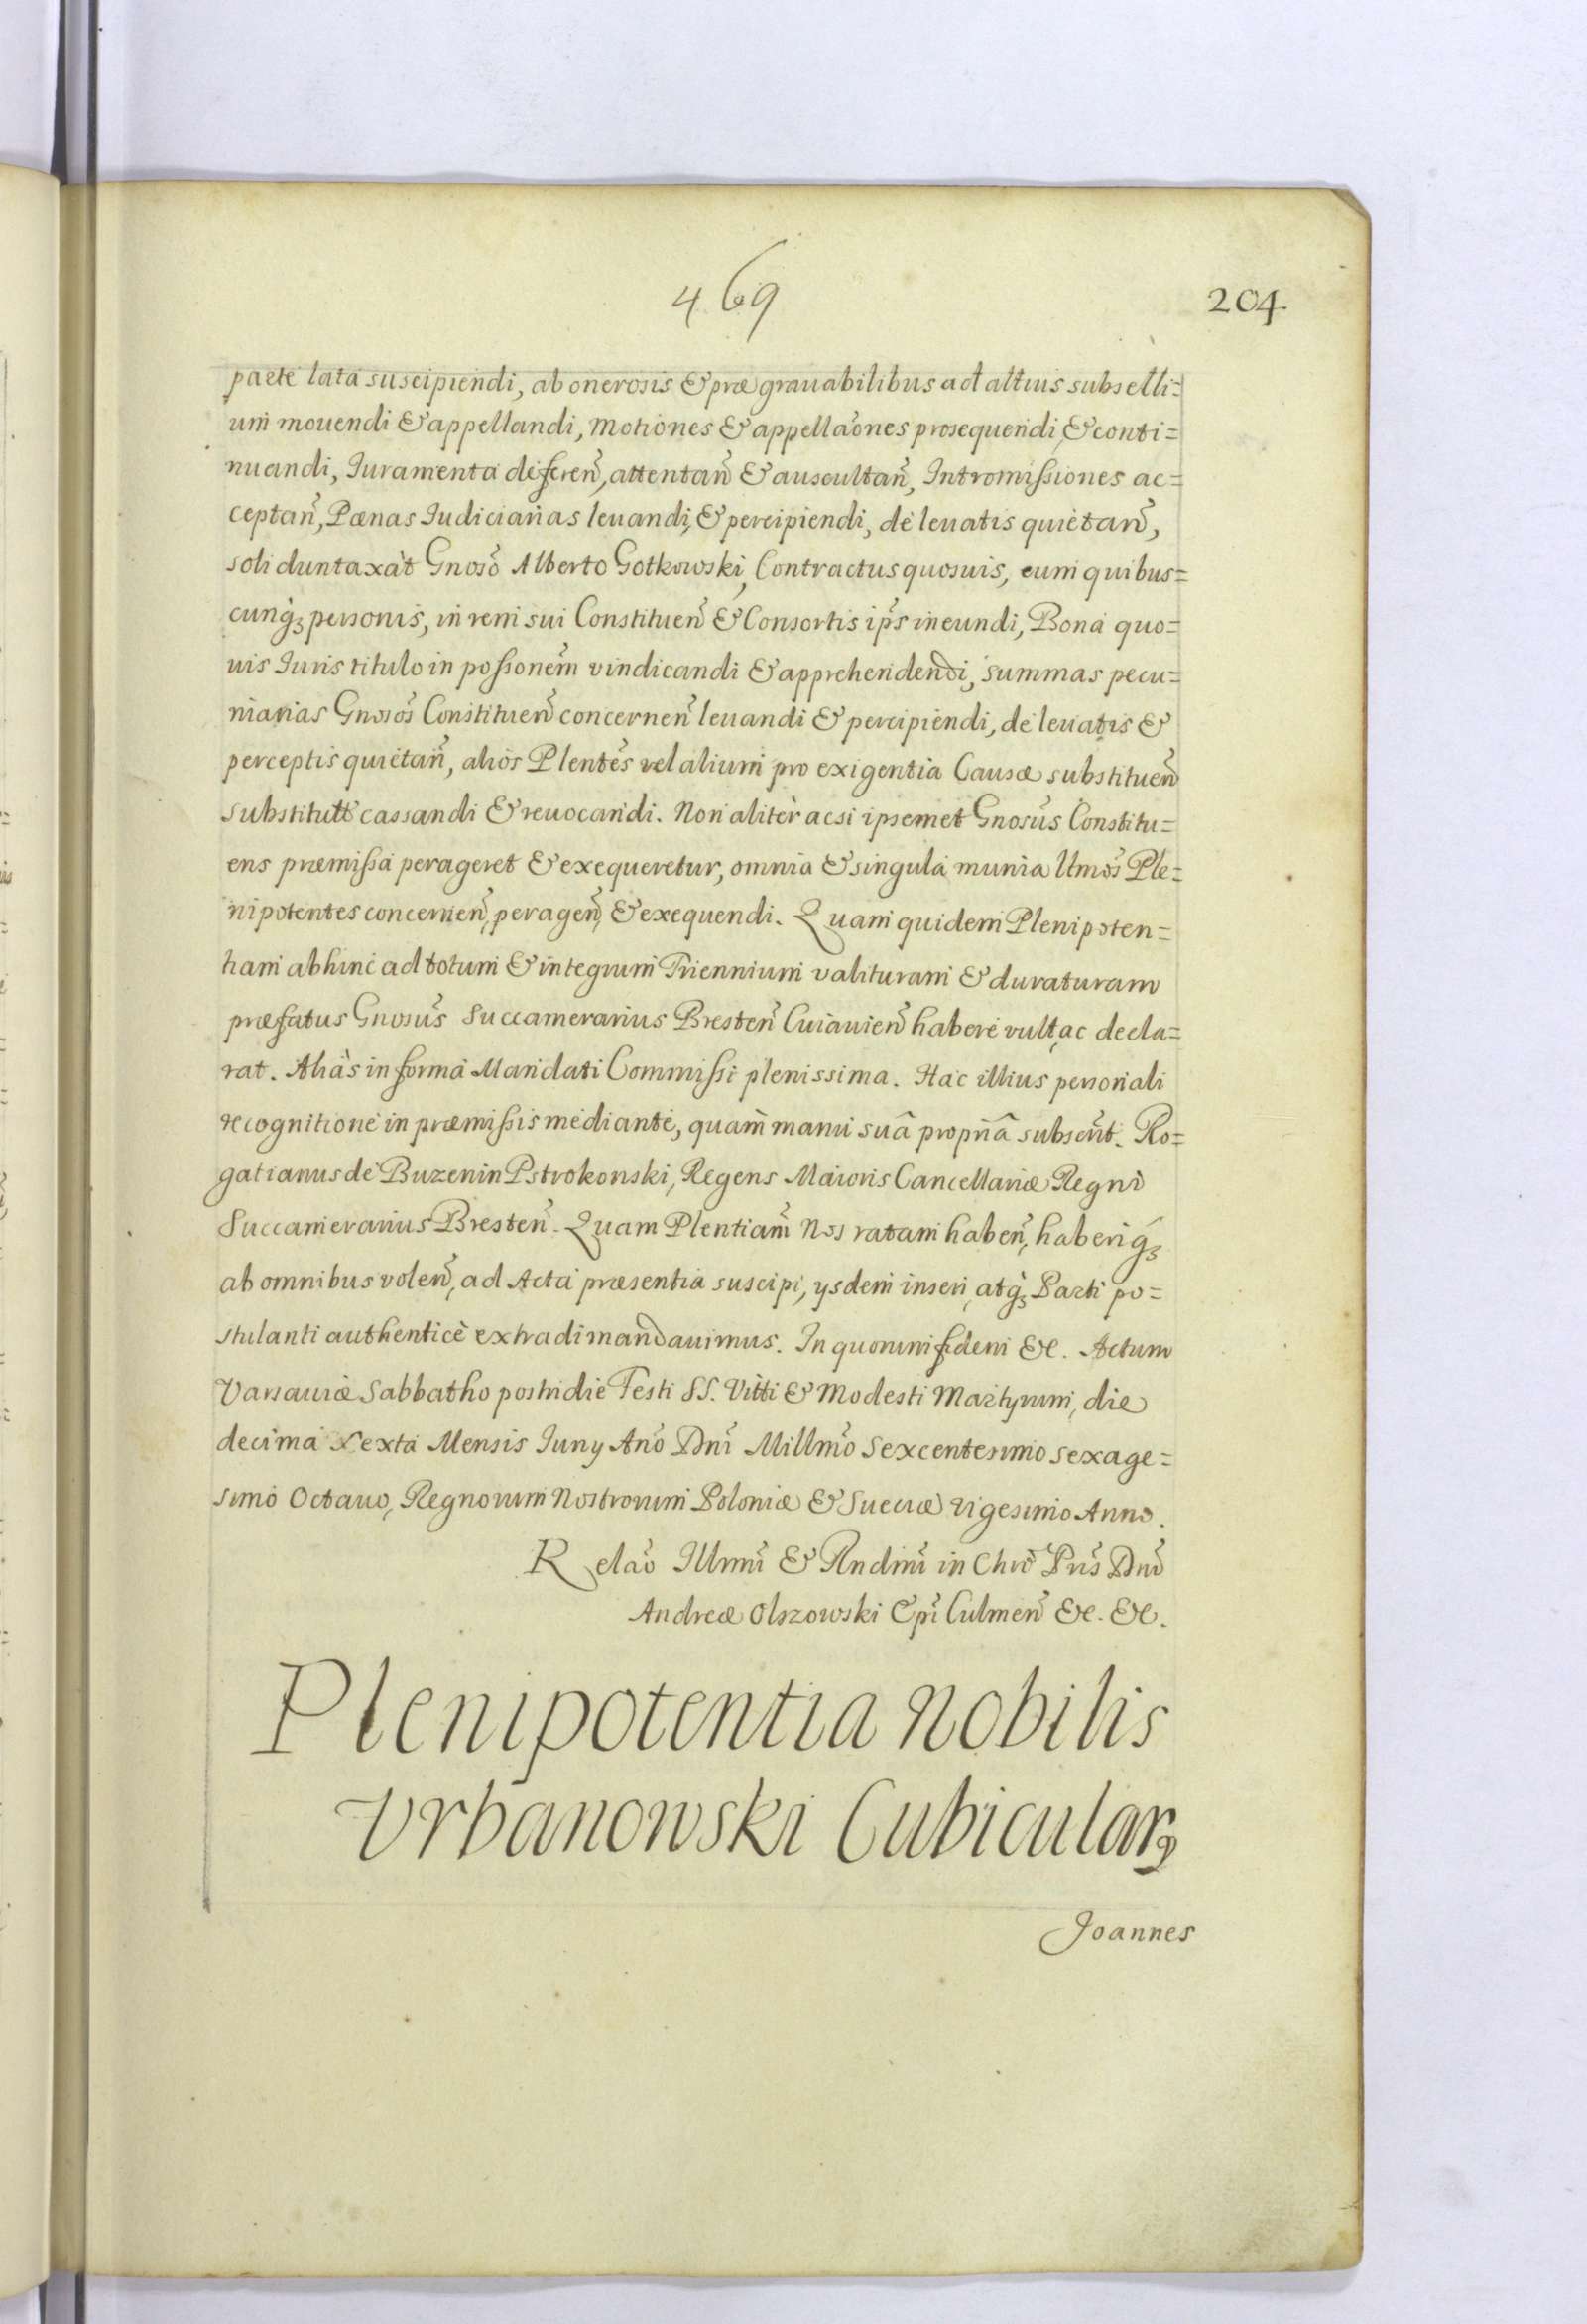 469
204.
parte lata suscipiendi, ab onerosis & præ grauabilibus ad altius subselli=
um mouendi & appellandi, Motiones & appellaõnes prosequendi, & conti=
nuandi, Iuramenta deferen̄, attentan̄ & auscultan̄, Intromissiones ac=
ceptan̄, Pænas Iudiciarias leuandi, & percipiendi, de leuatis quietan̄,
soli duntaxàt Gnosõ Alberto Gotkowski, Contractus quosuis, cum quibus=
cunq̃ȝ personis, in rem sui Constituen̄ & Consortis ip̃s ineundi, Bona quo=
uis Iuris titulo in poßionem̃ vindicandi & apprehendendi, summas pecu=
niarias Gnosõs Constituen̄ concernen̄ leuandi & percipiendi, de leuatis &
perceptis quietan̄, alios Plentẽs vel alium pro exigentia Causæ substituen̄
substitutt̃ cassandi & reuocandi. Non alitèr acsi ipsemet Gnosũs Constitu=
ens præmissa perageret & exequeretur, omnia & singula munia Ltmõs Ple=
nipotentes concernen̄, peragen̄, & exequendi. Quam quidem Plenipoten=
tiam abhinc ad totum & integrum Triennium valituram & duraturam
præfatus Gnosũs Succamerarius Bresten̄ Cuiauien̄ habere vult, ac decla=
rat. Aliàs in forma Mandati Commissi plenissima. Hac illius personali
recognitione in præmissis mediante, quam̀ manu suâ propriâ subscr̃t. Ro=
gatianus de Buzenin Pstrokonski, Regens Maioris Cancellariæ Regni
Succamerarius Bresten̄. Quam Plentiam̃ Nos ratam haben̄, haberiq̃ȝ
ab omnibus volen̄, ad Acta præsentia suscipi, ysdem inseri, atq̃ȝ Parti po=
stulanti authenticè extradi mandauimus. In quorum fidem &c. Actum
Varsauiæ Sabbatho postridie Festi SS. Vitti & Modesti Martyrum, die
decima sexta Mensis Iuny Anõ Dnĩ Millmõ Sexcentesimo sexage=
simo Octauo, Regnorum Nostrorum Poloniæ & Sueciæ vigesimo Anno.
Relaõ Illmĩ & Rndmĩ in Chrõ Pris̃ Dnĩ
Andreæ Olszowski Epĩ Culmen̄ &c. &c.
Plenipotentia Nobilis
Vrbanowski Cubicularŷ
Joannes